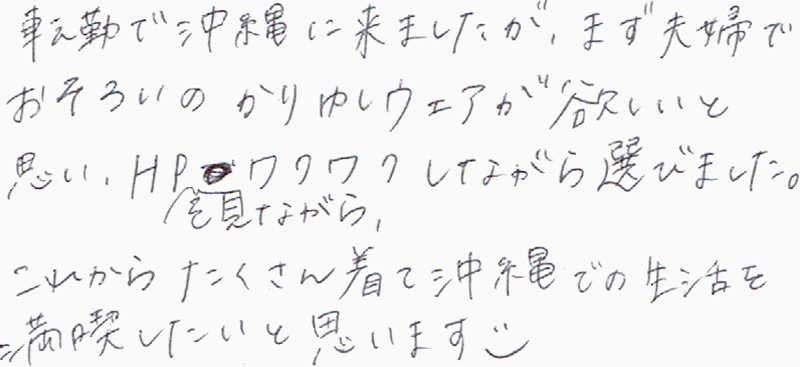 転勤で沖縄に来ましたが、まず夫婦で
おそろいのかりゆしウェアが欲しいと
思い、HPワクワクしながら選びました。
を見ながら、
これからたくさん着て沖縄での生活を
満喫したいと思います